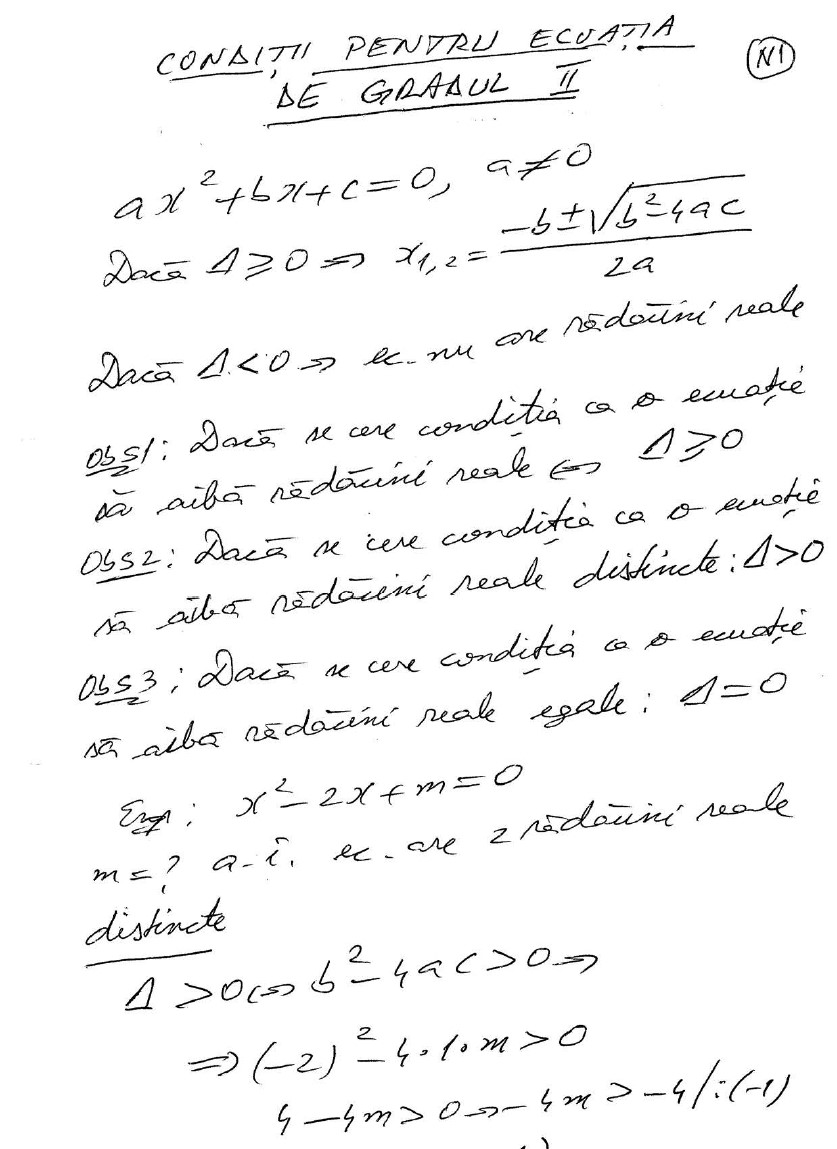 CONDIȚII PENTRU ECUAȚIA
N1
DE GRADUL II
ax²+bx+c=0, a≠0
Dacă Δ≥0 => x1,2 = (-b±√(b²-4ac))/2a
Dacă Δ<0 => ec. nu are rădăcini reale
Obs1: Dacă se cere condiția ca o ecuație
să aibă rădăcini reale <=> Δ≥0
Obs2: Dacă se cere condiția ca o ecuație
să aibă rădăcini reale distincte: Δ>0
Obs3: Dacă se cere condiția ca o ecuație
să aibă rădăcini reale egale: Δ=0
Exp: x²-2x+m=0
m=? a.î. ec. are 2 rădăcini reale
distincte
Δ>0 <=> b²-4ac>0 =>
=> (-2)²-4·1·m>0
4-4m>0 => -4m>-4/:(-1)